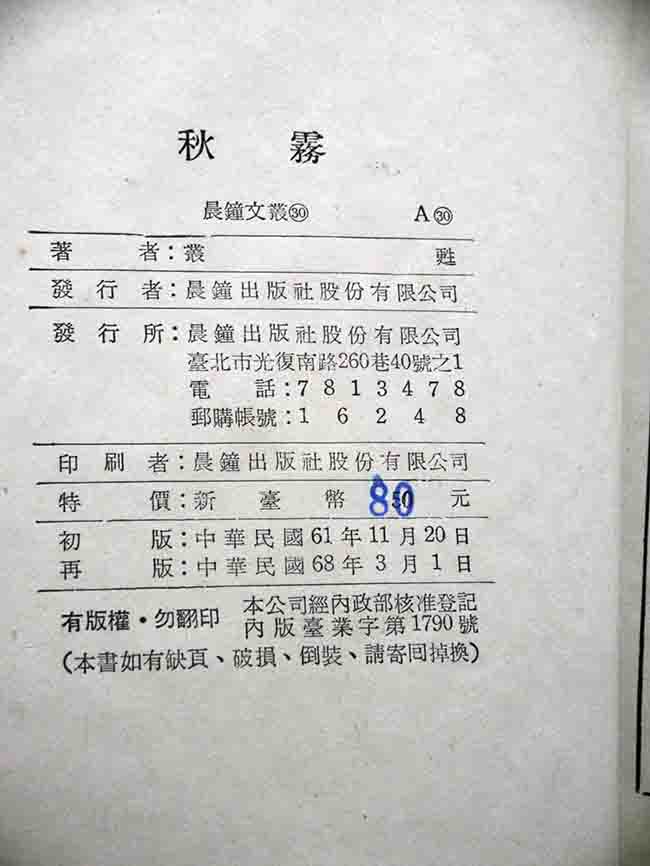 秋霧
晨鐘文叢㉚ A㉚
著者：叢甦
發行者：晨鐘出版社股份有限公司
發行所：晨鐘出版社股份有限公司
臺北市光復南路260巷40號之1
電話：7813478
郵購帳號：16248
印刷者：晨鐘出版社股份有限公司
特價：新臺幣50元
80
初版：中華民國61年11月20日
再版：中華民國68年3月1日
有版權・勿翻印
本公司經內政部核准登記
內版臺業字第1790號
（本書如有缺頁、破損、倒裝、請寄回掉換）